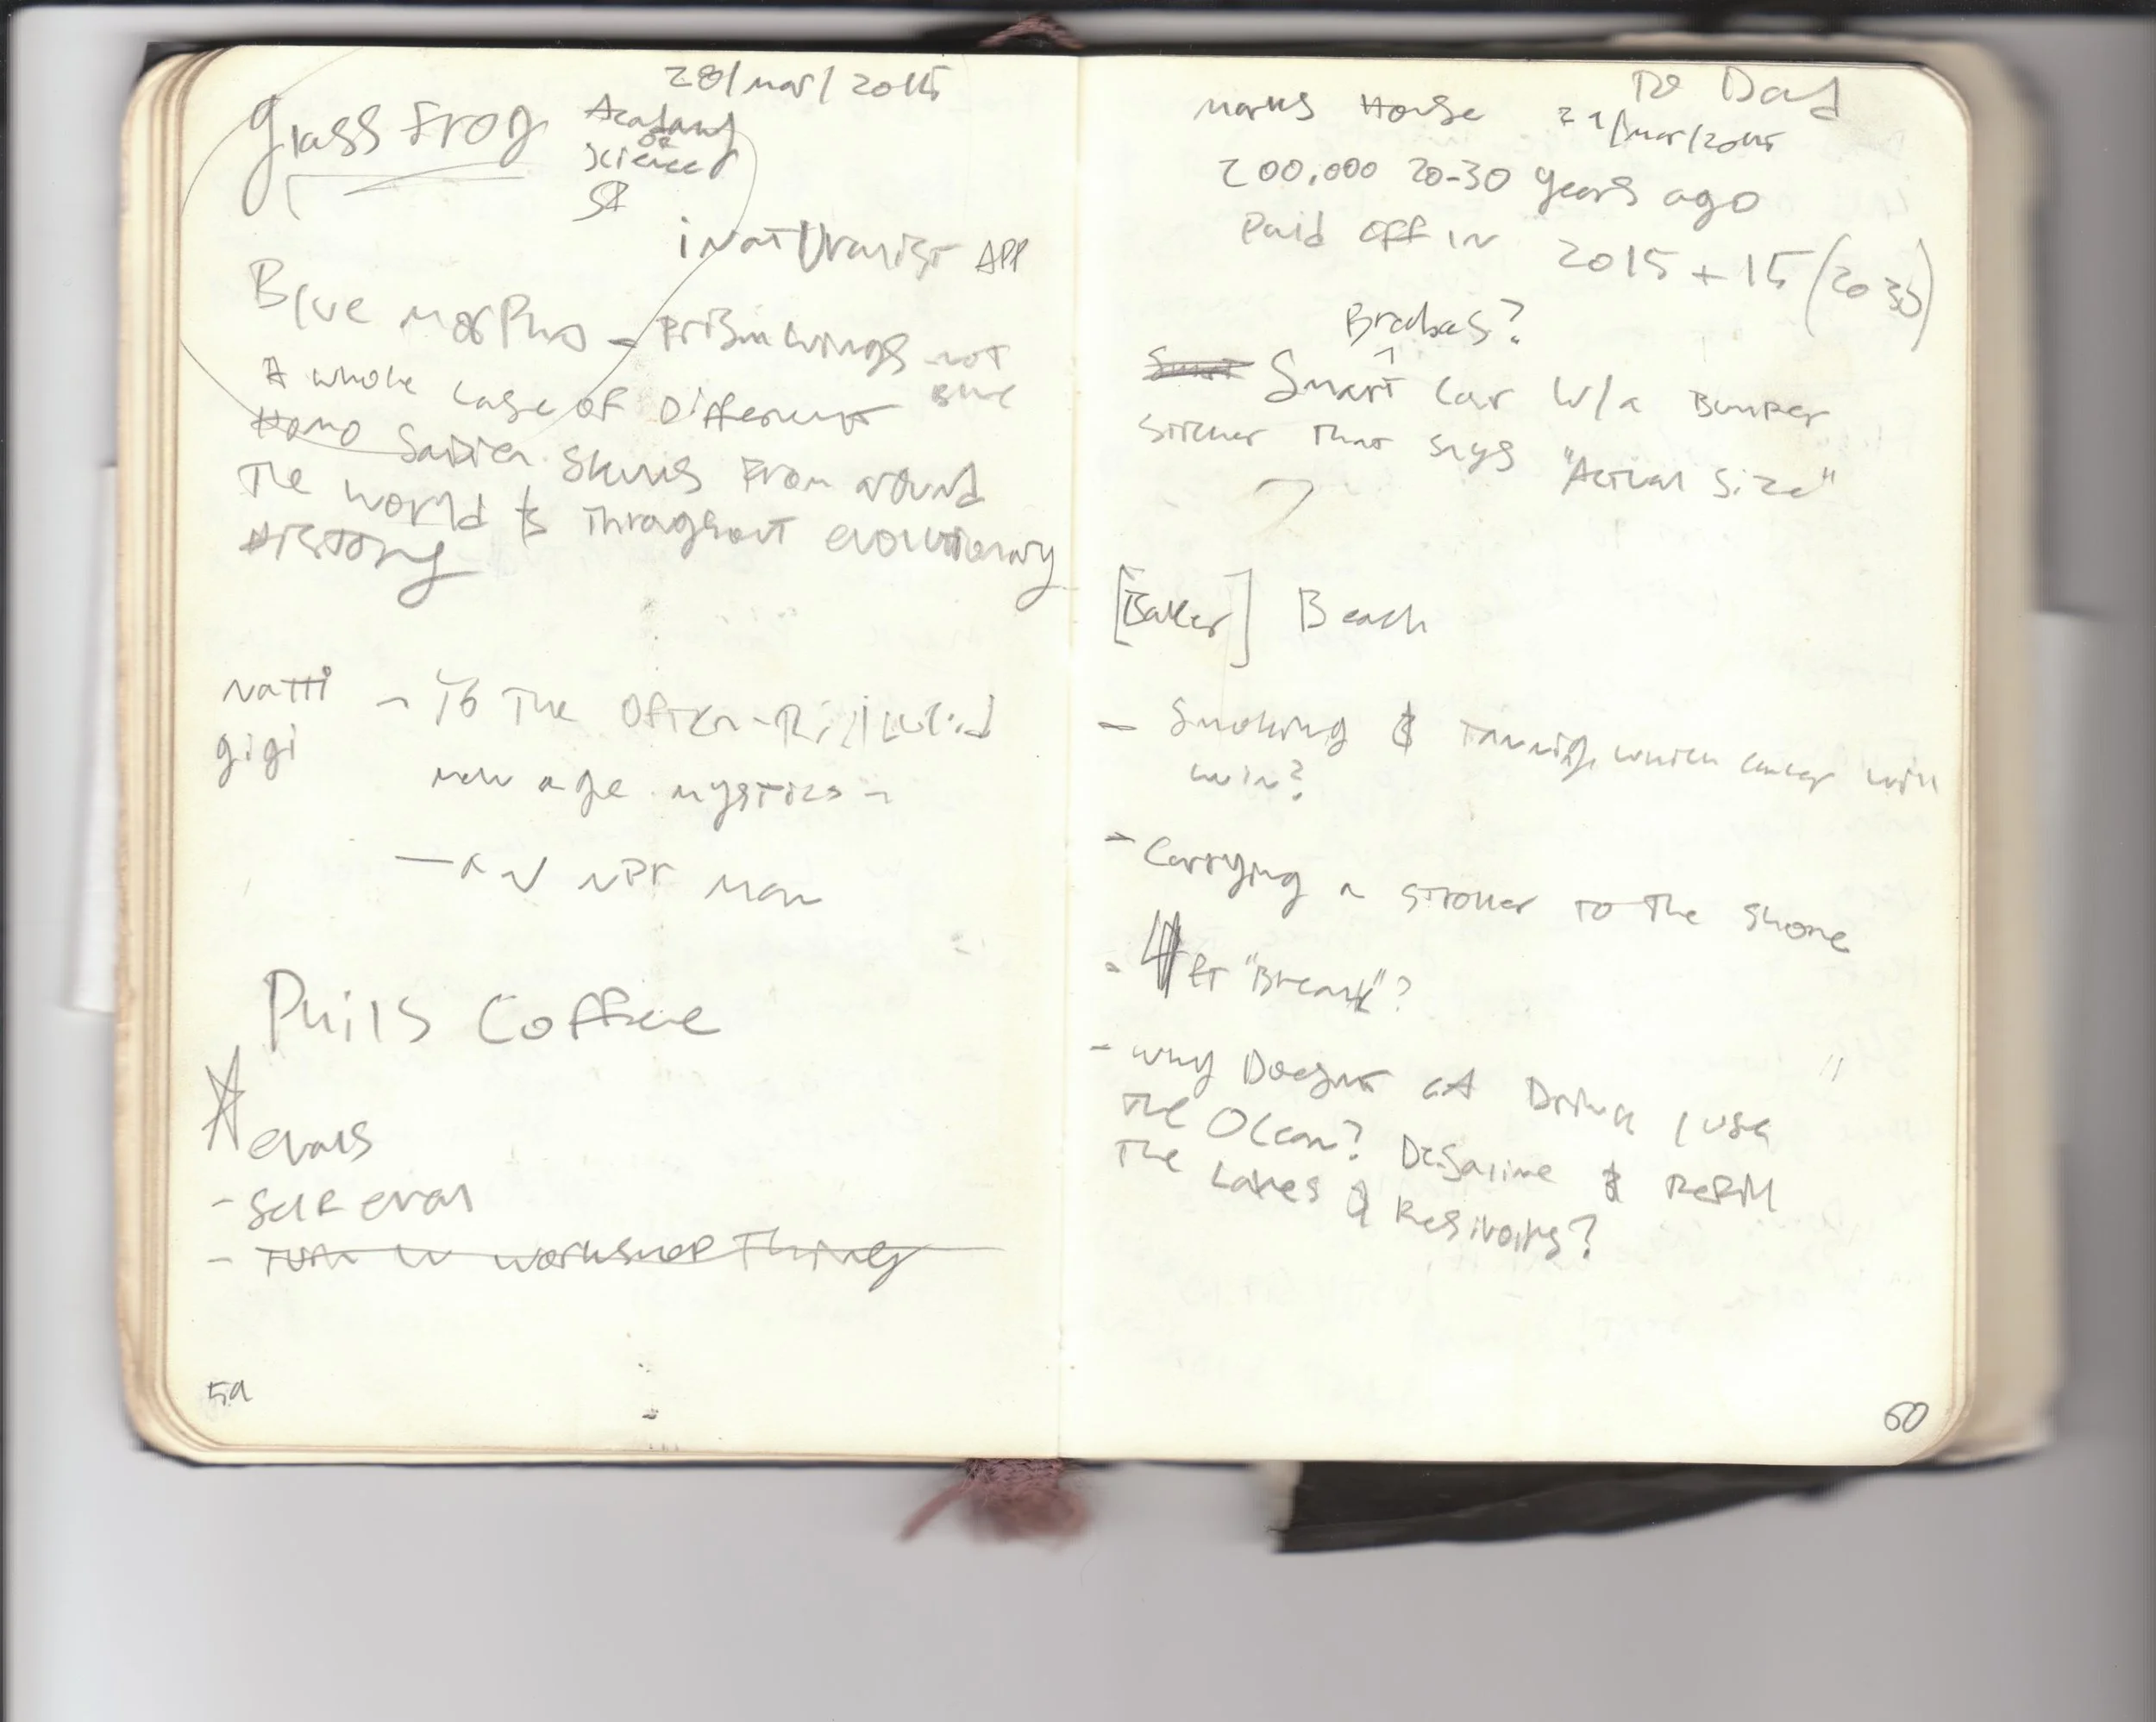 28/mar/2015
glass frog
Academy
of
Science
SF
iNatUralist APP
Blue morpho - Prism wings not
blue
A whole case of Different
Homo Sapien Skulls From around
The world & Throughout evolutionary
History
Natti
gigi
- To The Often-Ridiculed
new age mystics -
NPR Man
Phils Coffee
evals
- Self eval
- Turn in workshop Things
59
To Dad
Marks House 29/mar/2015
200,000 20-30 years ago
Paid off in 2015 + 15 (2030)
Brabus?
Smart Smart Car W/a Bumper
Sticker That says "Actual Size"
[Baker] Beach
- Smoking & Tanning, which cancer will
win?
- Carrying a stroller to the shore
- "Break"?
- why Doesnt CA Drink / use
The Ocean? Desaline & Refill
The Lakes & Resivoirs?
60